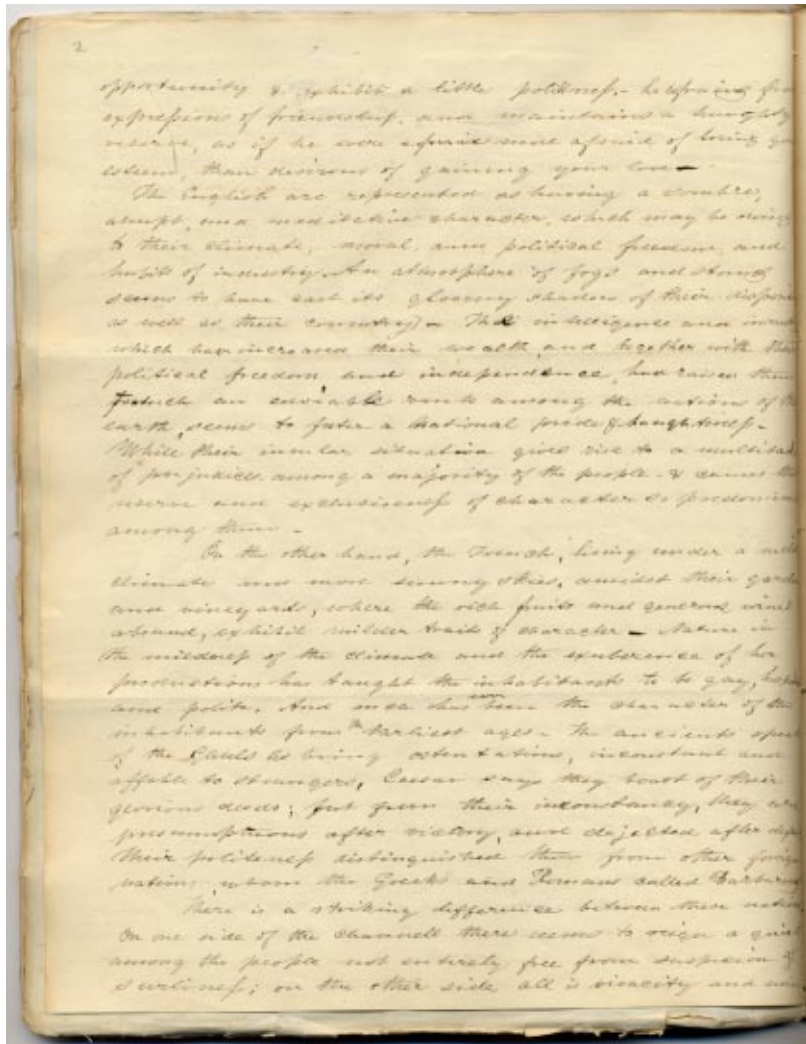 2
opportunity to exhibit a little politeness. he refrains
expressions of friendship, and maintains a haughty
reserve, as if he were more afraid of losing
esteem, than desirous of gaining your love —
The English are represented as having a sombre,
abrupt, and meditative character, which may be owing
to their climate, moral, and political freedom, and
habits of industry. An atmosphere of fogs and storms
seems to have cast its gloomy shadow of their
as well as their country) – The intelligence and
which has increased their wealth, and together with their
political freedom, and independence, has raised them
to such an enviable rank among the nations of the
earth, seems to foster a national pride & haughtiness –
While their insular situation gives rise to a
of prejudices among a majority of the people – & causes the
reserve and exclusiveness of character so
among them –
On the other hand, the French, living under a
climate and more sunny skies, amidst their
and vineyards, where the rich fruits and generous
abound, exhibit milder traits of character – Nature in
the mildness of the climate and the exuberence of her
productions has taught the inhabitants to be gay,
and polite, And such has been the character of the
inhabitants from the earliest ages – The ancients
of the Gauls as being ostentatious, inconstant and
affable to strangers, Caesar says they boast of their
glorious deeds; but from their inconstancy, they
presumptuous after victory, and dejected after
Their politeness distinguished them from other
nations, whom the Greeks and Romans called
There is a striking difference between these
On one side of the Channell there seems to reign a
among the people not entirely free from suspicion &
surliness; on the other side all is vivacity and